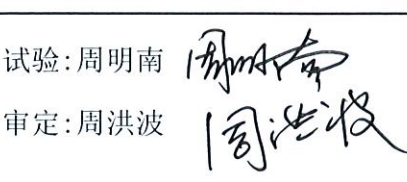 试验:周明南 周明南
审定:周洪波 周洪波